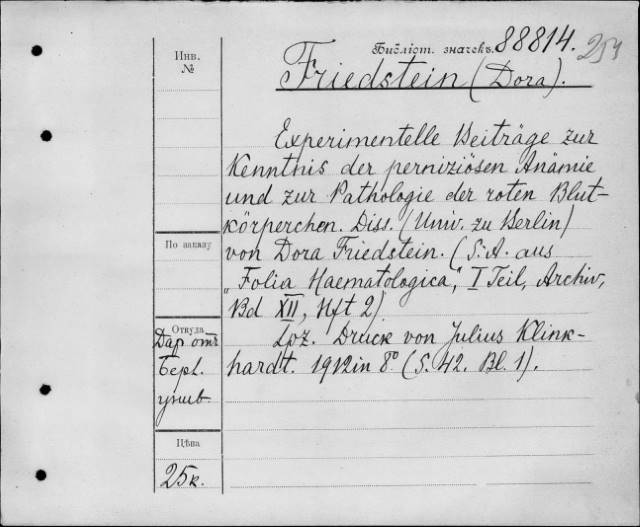 Инв.
№
Библіот. значекъ 88814.
Friedstein (Dora).
Experimentelle Beiträge zur
Kenntnis der perniziösen Anämie
und zur Pathologie der roten Blut-
körperchen. Diss. (Univ. zu Berlin)
По заказу
von Dora Friedstein. (S.A. aus
„Folia Haematologica“, I Teil, Archiv,
Bd XII, Hft 2)
Откуда
Даръ отъ
Берл.
унив.
Lpz. Druck von Julius Klink-
hardt. 1912 in 8° (S. 42. Bl. 1).
Цѣна
25к.